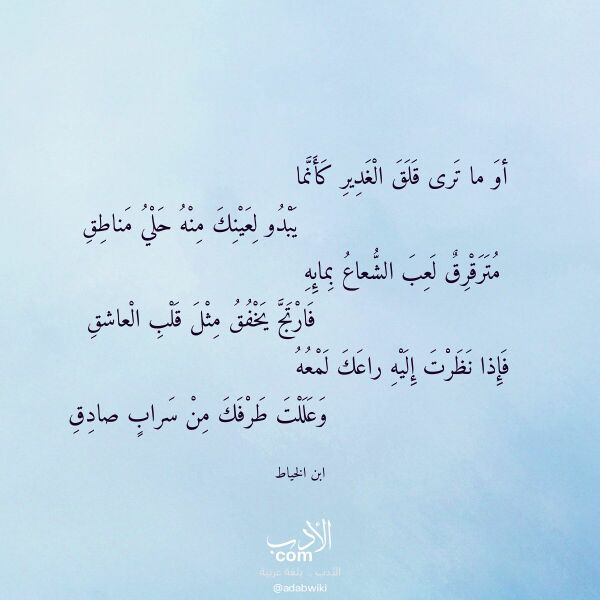 أوَ ما تَرى قَلَقَ الْغَدِيرِ كَأَنَّما
يَبْدُو لِعَيْنِكَ مِنْهُ حَلْيُ مَناطِقِ
مُتَرَقْرِقٌ لَعِبَ الشُّعاعُ بِمائِهِ
فَارْتَجَّ يَخْفُقُ مِثْلَ قَلْبِ الْعاشقِ
فَإِذا نَظَرْتَ إِلَيْهِ راعَكَ لَمْعُهُ
وَعَلَلْتَ طَرْفَكَ مِنْ سَرابٍ صادِقِ
ابن الخياط
الأدب
com
الأدب .. بلغة عربية
@adabwiki